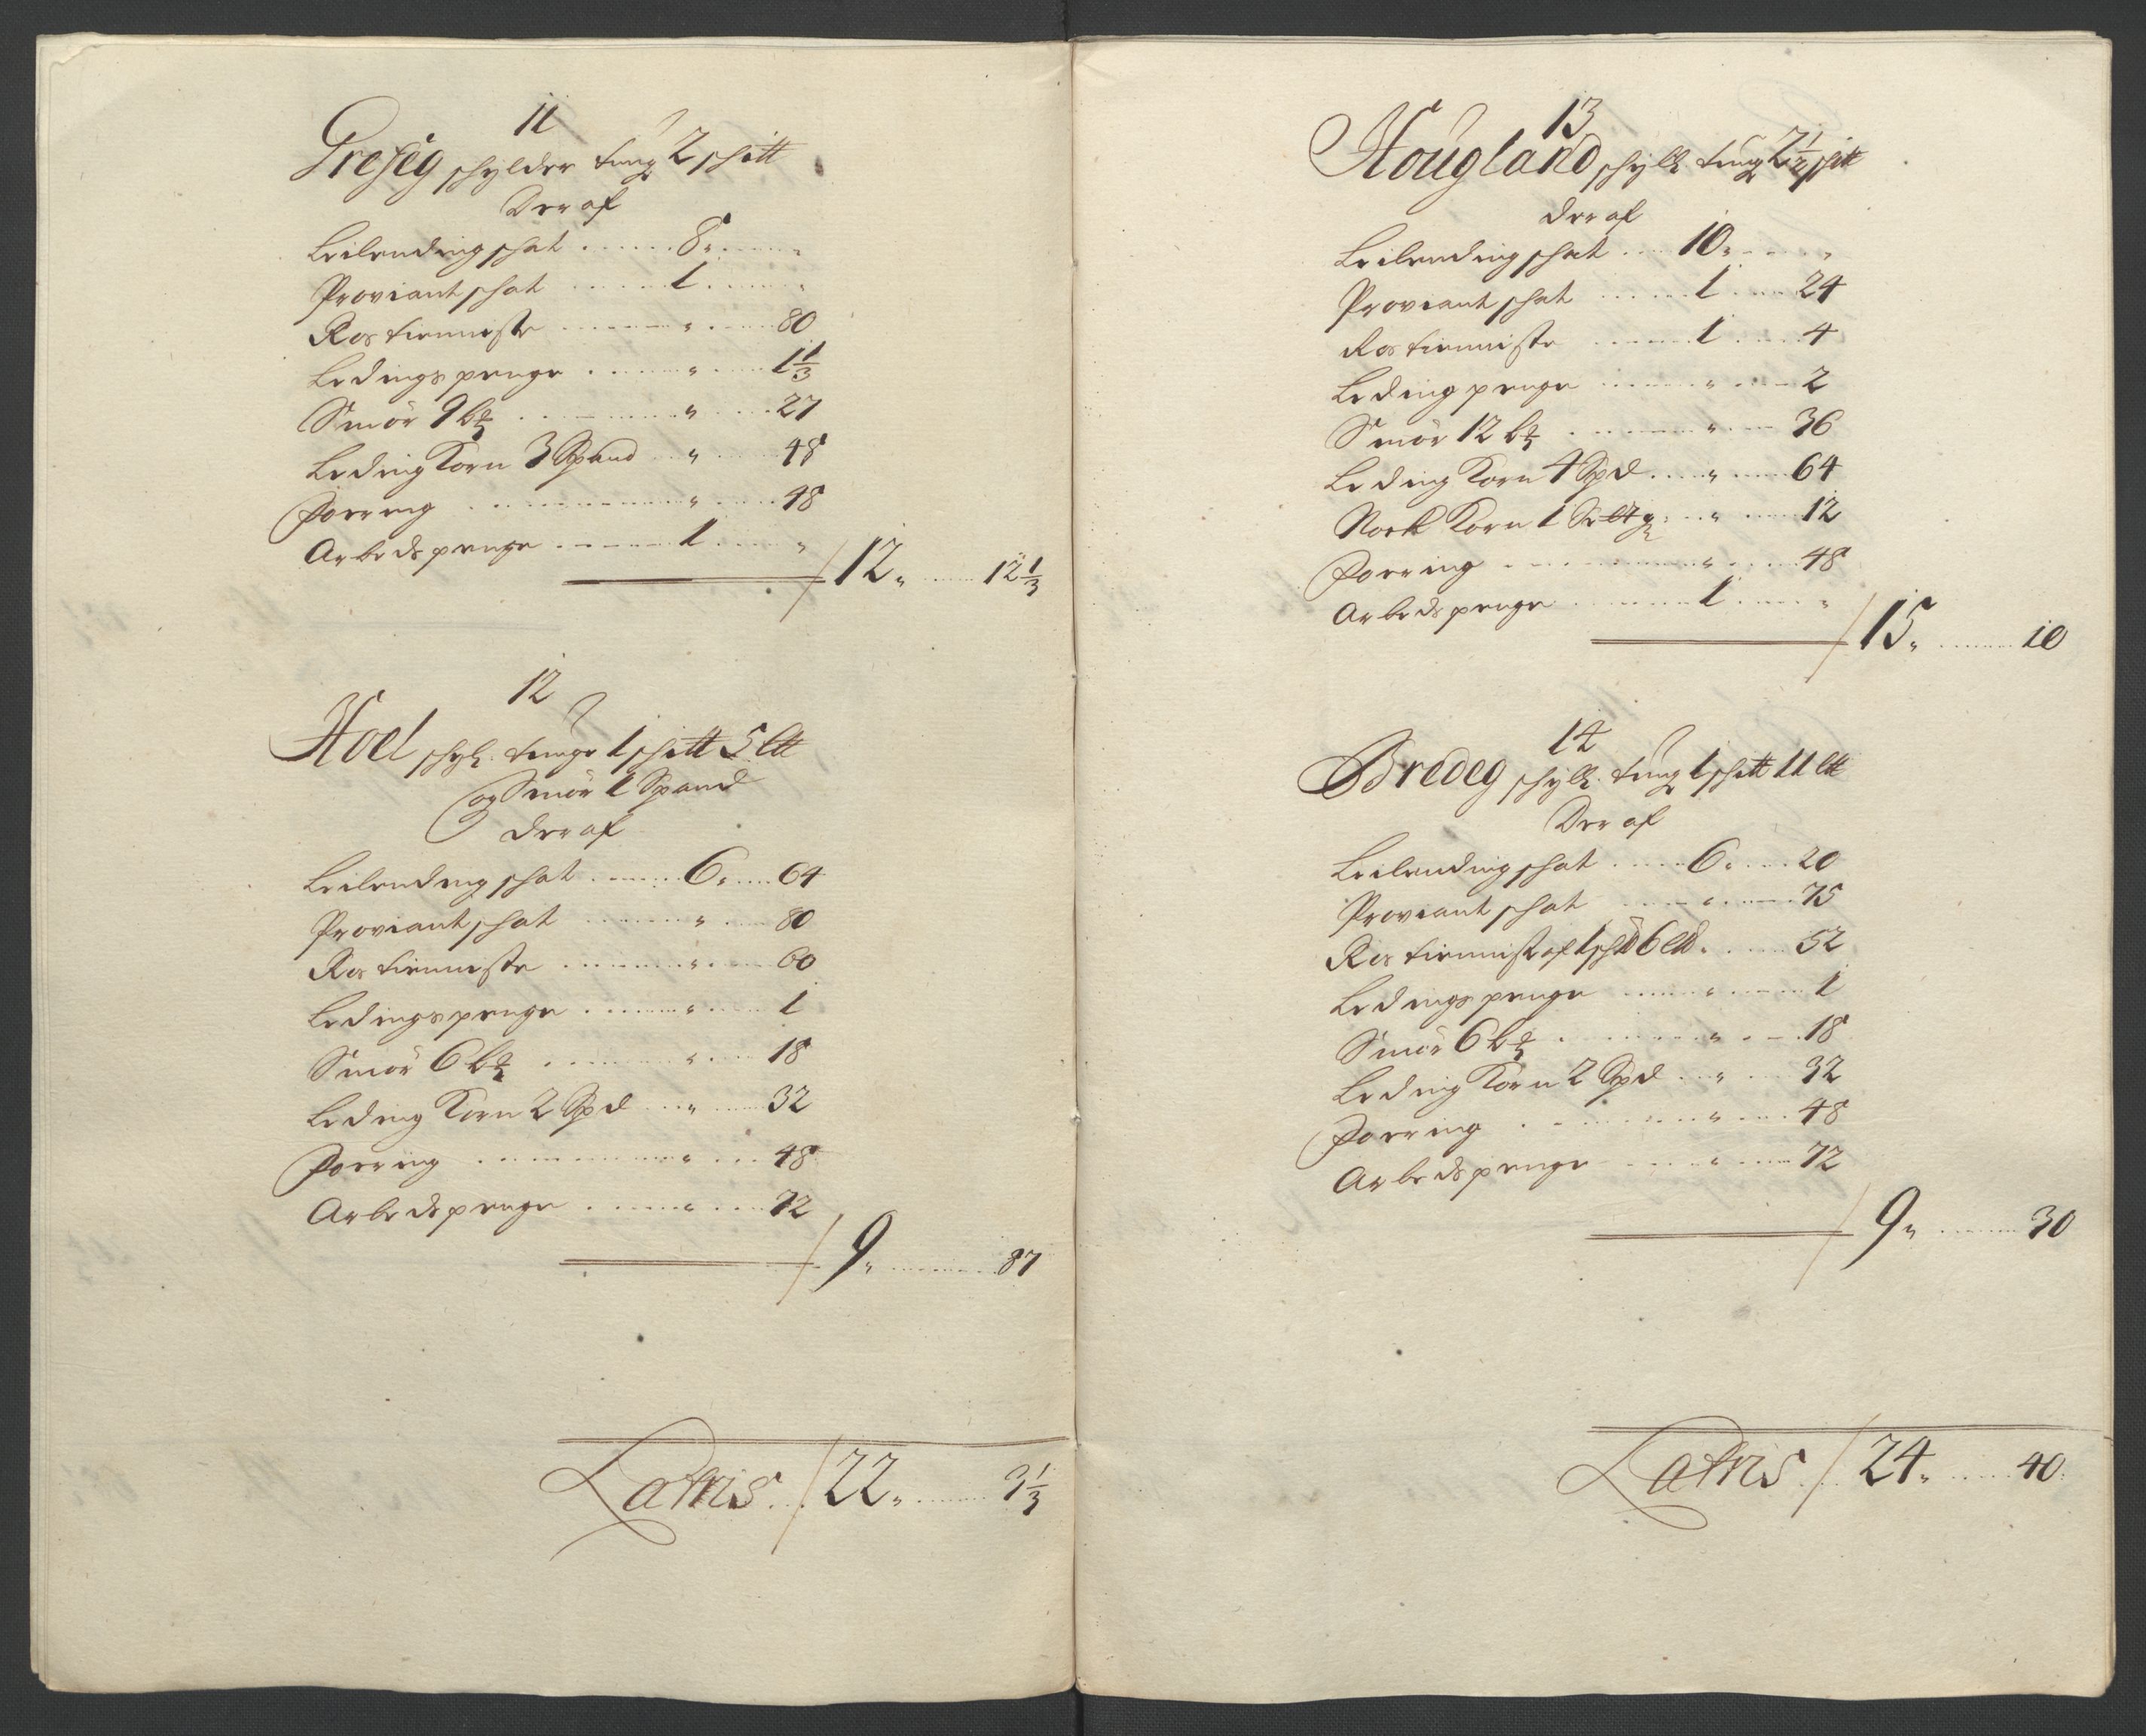 11
Greseg schylder tung 2 schitt
Der af
Leilending schat ...... 8 " ..... "
Proviant schat ...... 1 ...... "
Ros tienniste ...... " ..... 80
Ledings penge ...... " ..... 1 1/3
Smör 9 b ...... " .... 27
Leding Korn 3 Spand .. " .... 48
Foering ...... " ..... 48
Arbeds penge ...... 1 ..... "
/ 12 " ..... 12 1/3
12
Hoel schyl. tunge 1 schitt 5 lt
og Smör 1 Spand
der af
Leilending schat ...... 6 " .... 64
Proviant schat ...... " .... 80
Ros tienniste ...... " .... 60
Ledings penge ...... " .... 1
Smör 6 b ...... " .... 18
Leding Korn 2 Spd ... " .... 32
Foering ...... " ... 48
Arbeds penge ...... " .... 72
/ 9 " ...... 87
Latris .. / 22 " ...... 3 1/3
13
Hougland schyll. tung 2 1/2 schitt
der af
Leilending schat ... 10 " .... "
Proviant schat ...... 1 .... 24
Ros tienniste ...... 1 .... 4
Leding penge ...... " .... 2
Smör 12 b ...... " .... 36
Leding Korn 4 Spd .... " .... 64
Nork Korn 1 ... " .... 12
Foering ...... " .... 48
Arbeds penge ...... 1 .... "
/ 15 " ...... 10
14
Bredeg schyll. tung 1 schitt 11 lt
Der af
Leilending schat ..... 6 " .... 20
Proviant schat ..... " .... 75
Ros tiennist af 1 schid 6 ltd. .... 52
Ledings penge ..... " .... 1
Smör 6 b ...... " .... 18
Leding Korn 2 Spd .. " ... 32
Foering ...... " .... 48
Arbeds penge ..... " .... 72
/ 9 " ...... 30
Latris .. / 24 " ..... 40